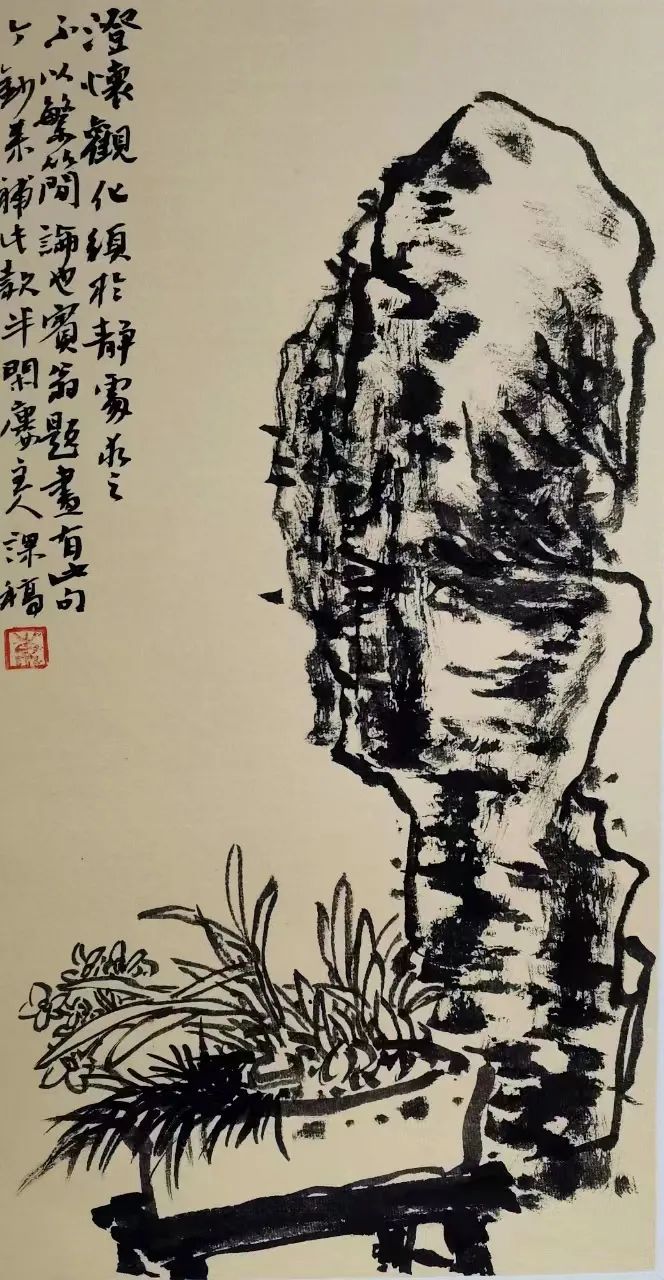 澄懷觀化須於靜處求之
不以繁簡論也賓翁題畫有此句
今鈔來補此款半閑廔主人課稿